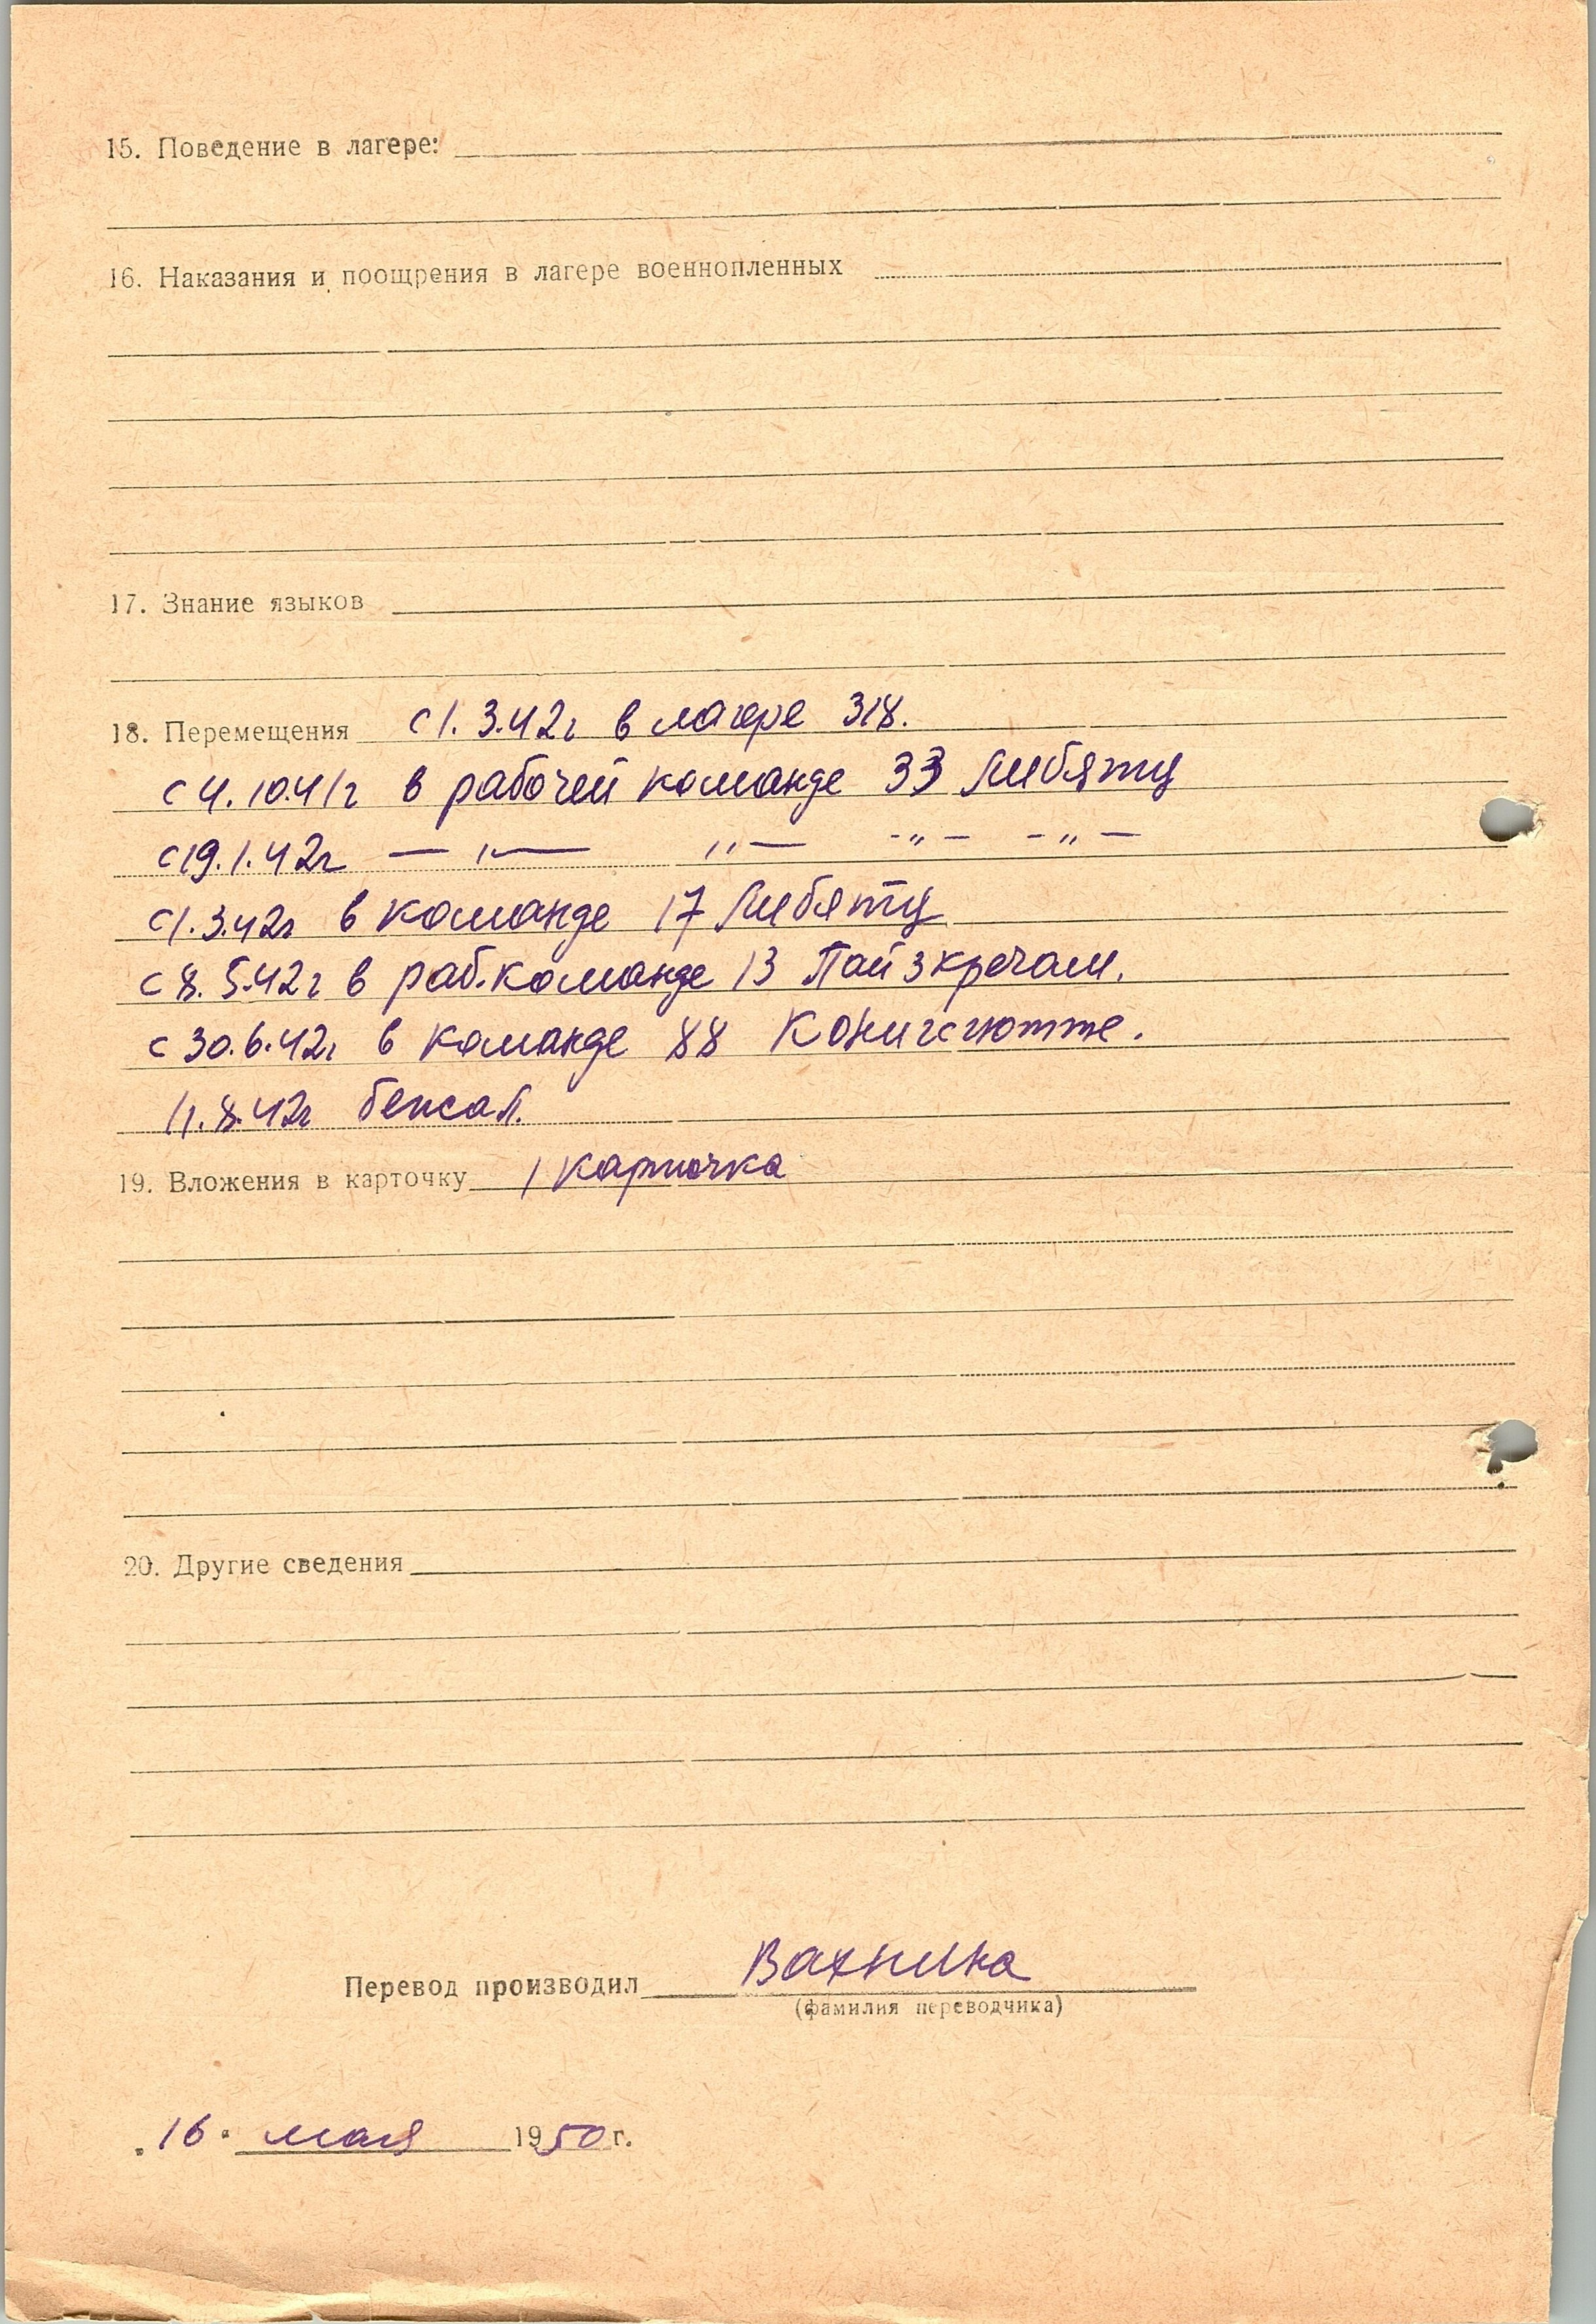 15. Поведение в лагере:
16. Наказания и поощрения в лагере военнопленных
17. Знание языков
18. Перемещения с 1. 3.42г в лагере 318.
с 4.10.41г в рабочей команде 33 Либятц
с 19.1.42г — " — " — - " - - " -
с 1.3.42г в команде 17 Либятц
с 8.5.42г в раб.команде 13 Пайзкречам.
с 30.6.42г в команде 88 Конигсгютте.
11.8.42г бежал.
19. Вложения в карточку 1 карточка
20. Другие сведения
Перевод производил Вахнина
(фамилия переводчика)
„16" мая 1950 г.